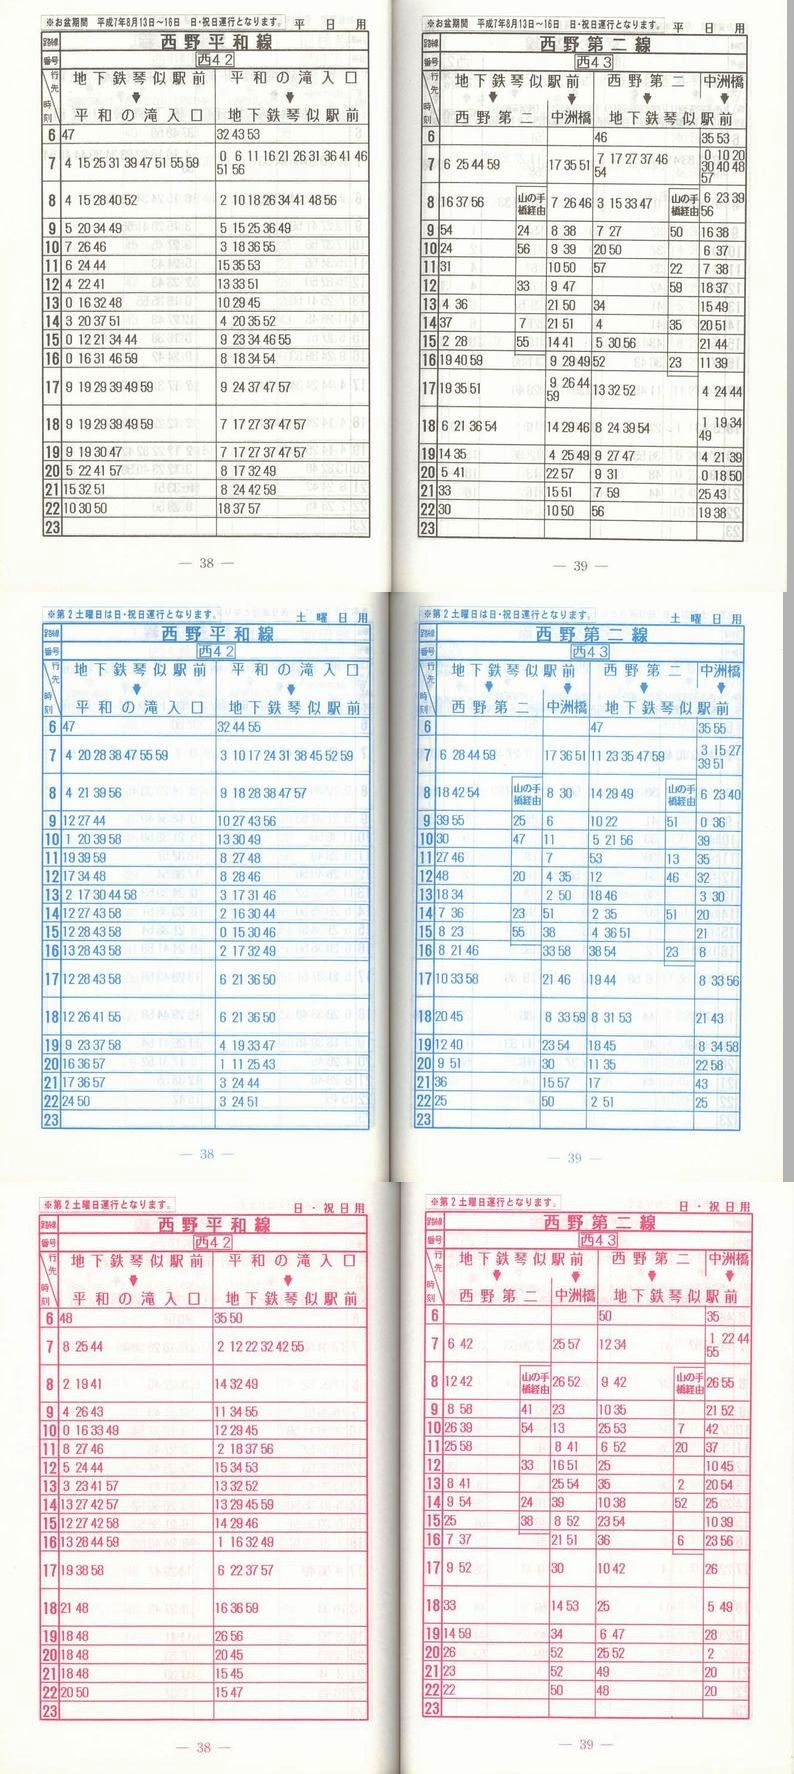 ※お盆期間 平成7年8月13日～16日 日・祝日運行となります。 平日用
路線 西野平和線
番号 西42
行先 地下鉄琴似駅前 平和の滝入口
時刻 平和の滝入口 地下鉄琴似駅前
6 47 32 43 53
7 4 15 25 31 39 47 51 55 59 0 6 11 16 21 26 31 36 41 46
51 56
8 4 15 28 40 52 2 10 18 26 34 41 48 56
9 5 20 34 49 5 15 25 36 49
10 7 26 46 3 18 36 55
11 6 24 44 15 35 53
12 4 22 41 13 33 51
13 0 16 32 48 10 29 45
14 3 20 37 51 4 20 35 52
15 0 12 21 34 44 9 23 34 46 55
16 0 16 31 46 59 8 18 34 54
17 9 19 29 39 49 59 9 24 37 47 57
18 9 19 29 39 49 59 7 17 27 37 47 57
19 9 19 30 47 7 17 27 37 47 57
20 5 22 41 57 8 17 32 49
21 15 32 51 8 24 42 59
22 10 30 50 18 37 57
23
— 38 —
※お盆期間 平成7年8月13日～16日 日・祝日運行となります。 平日用
路線 西野第二線
番号 西43
行先 地下鉄琴似駅前 西野第二 中洲橋
時刻 西野第二 中洲橋 地下鉄琴似駅前
6 46 35 53
7 6 25 44 59 17 35 51 7 17 27 37 46 54 0 10 20 30 40 48 57
8 16 37 56 山の手橋経由 7 26 46 3 15 33 47 山の手橋経由 6 23 39 56
9 54 24 8 38 7 27 50 16 38
10 24 56 9 39 20 50 6 37
11 31 10 50 57 22 7 38
12 33 9 47 59 18 37
13 4 36 21 50 34 15 49
14 37 7 21 51 4 35 20 51
15 2 28 55 14 41 5 30 56 21 44
16 19 40 59 9 29 49 52 23 11 39
17 19 35 51 9 26 44 59 13 32 52 4 24 44
18 6 21 36 54 14 29 46 8 24 39 54 1 19 34 49
19 14 35 4 25 49 9 27 47 4 21 39
20 5 41 22 57 9 31 0 18 50
21 33 15 51 7 59 25 43
22 30 10 50 56 19 38
23
— 39 —
※第2土曜日は日・祝日運行となります。 土曜日用
路線 西野平和線
番号 西42
行先 地下鉄琴似駅前 平和の滝入口
時刻 平和の滝入口 地下鉄琴似駅前
6 47 32 44 55
7 4 20 28 38 47 55 59 3 10 17 24 31 38 45 52 59
8 4 21 39 56 9 18 28 38 47 57
9 12 27 44 10 27 43 56
10 1 20 39 58 13 30 49
11 19 39 59 8 27 48
12 17 34 48 8 28 46
13 2 17 30 44 58 3 17 31 46
14 12 27 43 58 2 16 30 44
15 12 28 43 58 0 15 30 46
16 13 28 43 58 2 17 32 49
17 12 28 43 58 6 21 36 50
18 12 26 41 55 6 21 36 50
19 9 23 37 58 4 19 33 47
20 16 36 57 1 11 25 43
21 17 36 57 3 24 44
22 24 50 3 24 51
23
— 38 —
※第2土曜日は日・祝日運行となります。 土曜日用
路線 西野第二線
番号 西43
行先 地下鉄琴似駅前 西野第二 中洲橋
時刻 西野第二 中洲橋 地下鉄琴似駅前
6 47 35 55
7 6 28 44 59 17 36 51 11 23 35 47 59 3 15 27 39 51
8 18 42 54 山の手橋経由 8 30 14 29 49 山の手橋経由 6 23 40
9 39 55 25 6 10 22 51 0 36
10 30 47 11 5 21 56 39
11 27 46 7 53 13 35
12 48 20 4 35 12 46 32
13 18 34 2 50 18 46 3 30
14 7 36 23 51 2 35 51 20
15 8 23 55 38 4 36 51 21
16 8 21 46 33 58 38 54 23 8
17 10 33 58 21 46 19 44 8 33 56
18 20 45 8 33 59 8 31 53 21 43
19 12 40 23 54 18 45 8 34 58
20 9 51 30 11 35 22 58
21 36 15 57 17 43
22 25 50 2 51 25
23
— 39 —
※第2土曜日運行となります。 日・祝日用
路線 西野平和線
番号 西42
行先 地下鉄琴似駅前 平和の滝入口
時刻 平和の滝入口 地下鉄琴似駅前
6 48 35 50
7 8 25 44 2 12 22 32 42 55
8 2 19 41 14 32 49
9 4 26 43 11 34 55
10 0 16 33 49 12 29 45
11 8 27 46 2 18 37 56
12 5 24 44 15 34 53
13 3 23 41 57 13 32 52
14 13 27 42 57 13 29 45 59
15 12 27 42 58 14 29 46
16 13 28 44 59 1 16 32 49
17 19 38 58 6 22 37 57
18 21 48 16 36 59
19 18 48 26 56
20 18 48 20 45
21 18 48 15 45
22 20 50 15 47
23
— 38 —
※第2土曜日運行となります。 日・祝日用
路線 西野第二線
番号 西43
行先 地下鉄琴似駅前 西野第二 中洲橋
時刻 西野第二 中洲橋 地下鉄琴似駅前
6 50 35
7 6 42 25 57 12 34 1 22 44 55
8 12 42 山の手橋経由 26 52 9 42 山の手橋経由 26 55
9 8 58 41 23 10 35 21 52
10 26 39 54 13 25 53 7 42
11 25 58 8 41 6 52 20 37
12 33 16 51 25 10 45
13 8 41 25 54 35 2 20 54
14 9 54 24 39 10 38 52 25
15 25 38 8 52 23 54 10 39
16 7 37 21 51 36 6 23 56
17 9 52 30 10 42 26
18 33 14 53 25 5 49
19 14 59 34 6 47 28
20 26 52 25 52 2
21 23 52 49 20
22 22 50 48 20
23
— 39 —